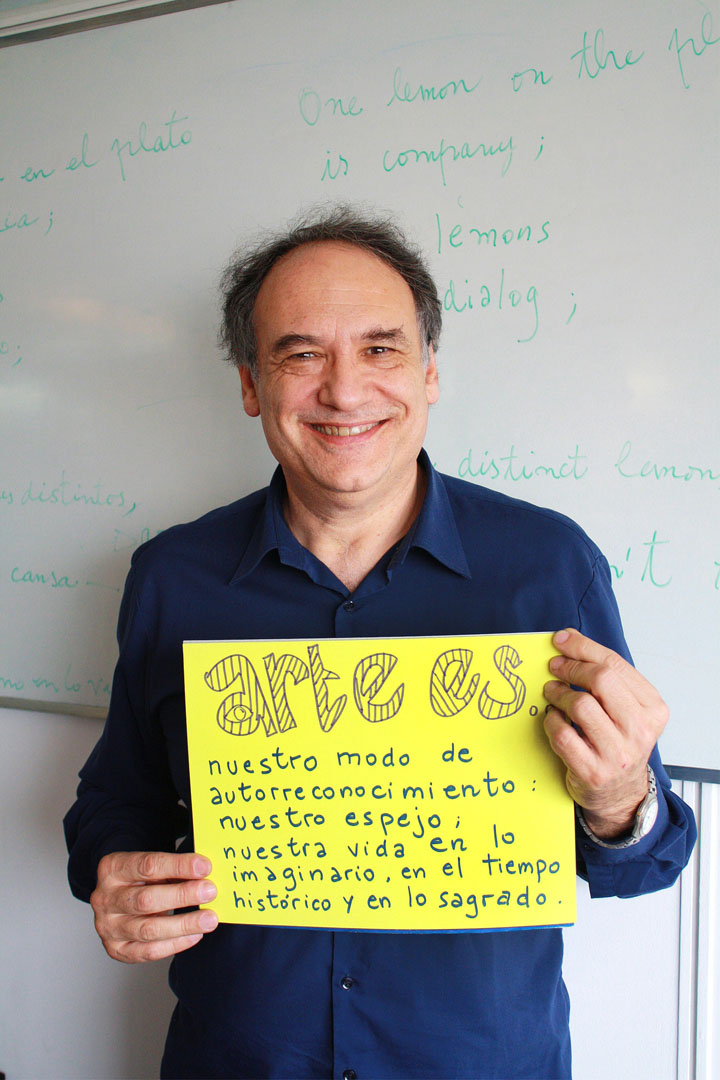 en el plato
One lemon on the
is company;
lemons
dialog;
distintos,
distinct lemon
cansa
arte es..
nuestro modo de
autorreconocimiento:
nuestro espejo;
nuestra vida en lo
imaginario, en el tiempo
histórico y en lo sagrado.